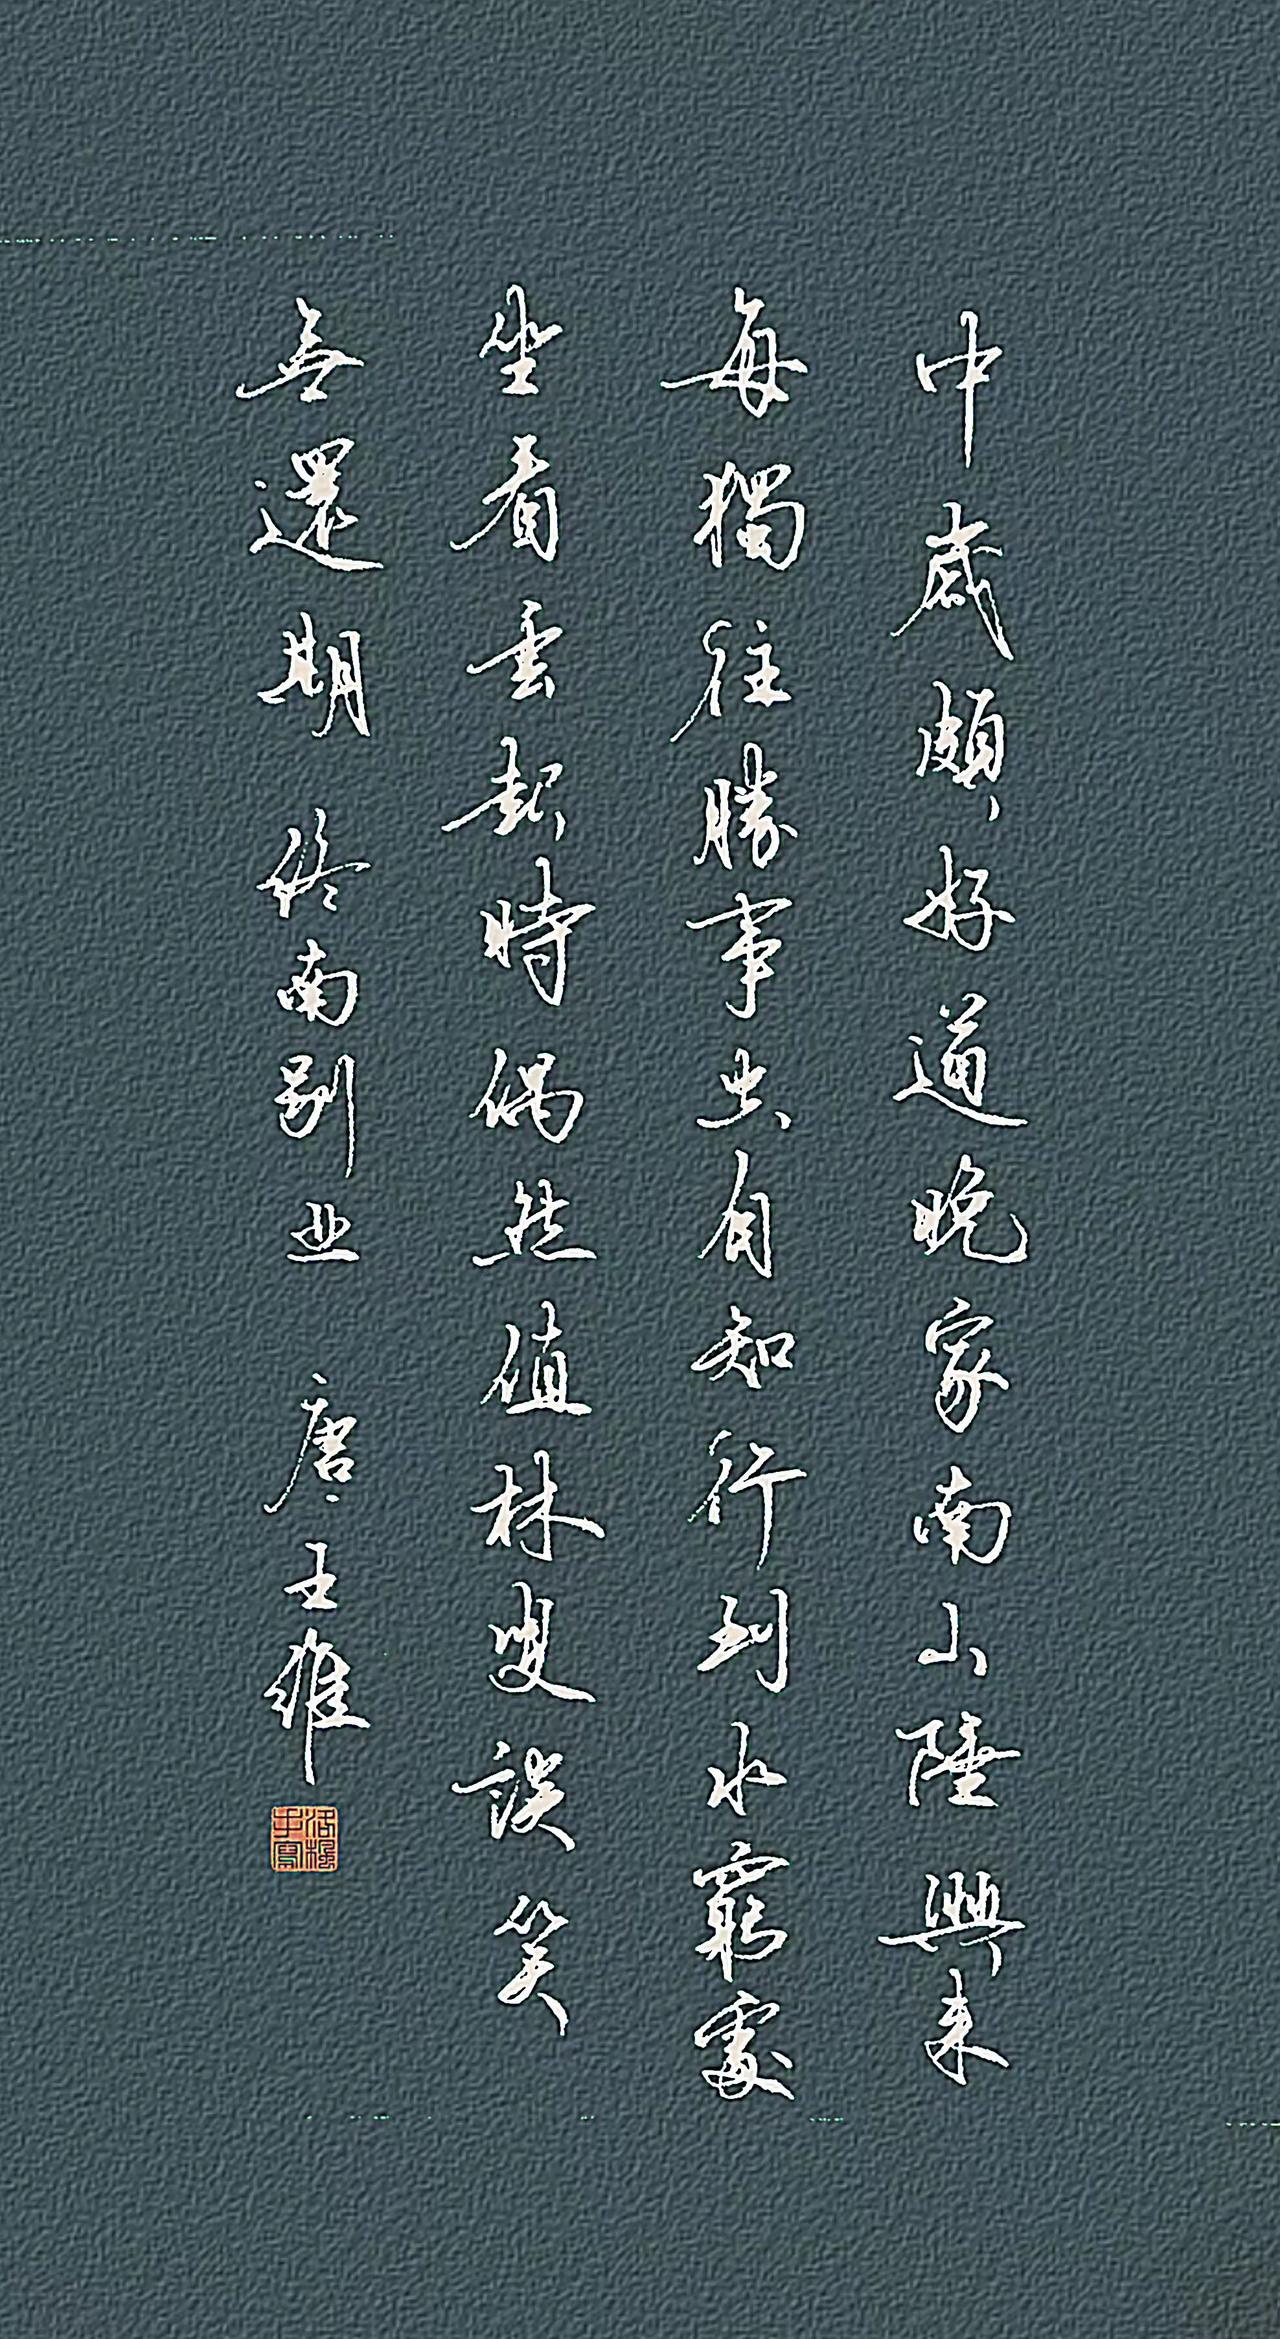 中歲頗好道晚家南山陲興来
每獨往勝事空自知行到水窮處
坐看雲起時偶然值林叟談笑
無還期 終南别业 唐 王維